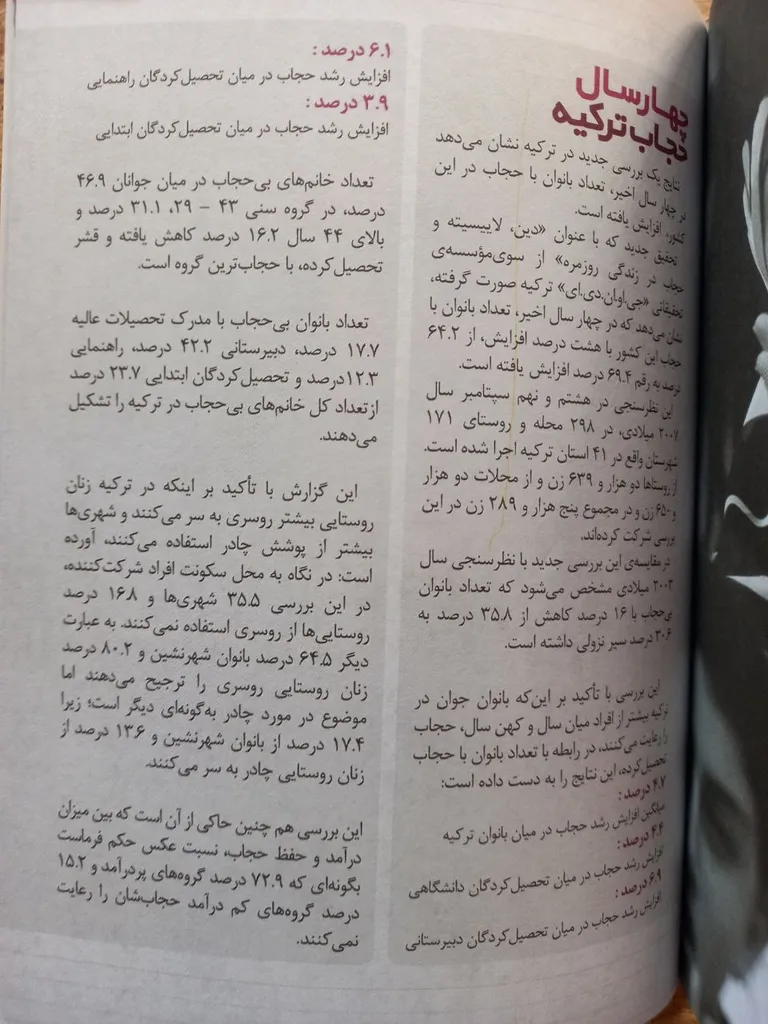 چهار سال
حجاب ترکیه
نتایج یک بررسی جدید در ترکیه نشان می‌دهد
در چهار سال اخیر، تعداد بانوان با حجاب در این
کشور، افزایش یافته است.
تحقیق جدید که با عنوان «دین، لاییسیته و
حجاب در زندگی روزمره» از سوی‌مؤسسه‌ی
تحقیقاتی «جی.او.ان.دی.ای» ترکیه صورت گرفته،
نشان می‌دهد که در چهار سال اخیر، تعداد بانوان با
حجاب این کشور با هشت درصد افزایش، از ۶۴.۲
درصد به رقم ۶۹.۴ درصد افزایش یافته است.
این نظرسنجی در هشتم و نهم سپتامبر سال
۲۰۰۷ میلادی، در ۲۹۸ محله و روستای ۱۷۱
شهرستان واقع در ۴۱ استان ترکیه اجرا شده است.
از روستاها دو هزار و ۶۳۹ زن و از محلات دو هزار
و ۶۵۰ زن و در مجموع پنج هزار و ۲۸۹ زن در این
بررسی شرکت کرده‌اند.
در مقایسه‌ی این بررسی جدید با نظرسنجی سال
۲۰۰۳ میلادی مشخص می‌شود که تعداد بانوان
بی‌حجاب با ۱۶ درصد کاهش از ۳۵.۸ درصد به
۳۰.۶ درصد سیر نزولی داشته است.
این بررسی با تأکید بر این‌که بانوان جوان در
ترکیه بیشتر از افراد میان سال و کهن سال، حجاب
را رعایت می‌کنند، در رابطه با تعداد بانوان با حجاب
تحصیل‌کرده، این نتایج را به دست داده است:
۴.۷ درصد :
میانگین افزایش رشد حجاب در میان بانوان ترکیه
۴.۴ درصد :
افزایش رشد حجاب در میان تحصیل‌کردگان دانشگاهی
۶.۹ درصد :
افزایش رشد حجاب در میان تحصیل‌کردگان دبیرستانی
۶.۱ درصد :
افزایش رشد حجاب در میان تحصیل‌کردگان راهنمایی
۳.۹ درصد :
افزایش رشد حجاب در میان تحصیل‌کردگان ابتدایی
تعداد خانم‌های بی‌حجاب در میان جوانان ۴۶.۹
درصد، در گروه سنی ۴۳ – ۲۹، ۳۱.۱ درصد و
بالای ۴۴ سال ۱۶.۲ درصد کاهش یافته و قشر
تحصیل‌کرده، با حجاب‌ترین گروه است.
تعداد بانوان بی‌حجاب با مدرک تحصیلات عالیه
۱۷.۷ درصد، دبیرستانی ۴۲.۲ درصد، راهنمایی
۱۲.۳درصد و تحصیل‌کردگان ابتدایی ۲۳.۷ درصد
از تعداد کل خانم‌های بی‌حجاب در ترکیه را تشکیل
می‌دهند.
این گزارش با تأکید بر اینکه در ترکیه زنان
روستایی بیشتر روسری به سر می‌کنند و شهری‌ها
بیشتر از پوشش چادر استفاده می‌کنند، آورده
است: در نگاه به محل سکونت افراد شرکت‌کننده،
در این بررسی ۳۵.۵ شهری‌ها و ۱۶.۸ درصد
روستایی‌ها از روسری استفاده نمی‌کنند. به عبارت
دیگر ۶۴.۵ درصد بانوان شهرنشین و ۸۰.۲ درصد
زنان روستایی روسری را ترجیح می‌دهند اما
موضوع در مورد چادر به‌گونه‌ای دیگر است؛ زیرا
۱۷.۴ درصد از بانوان شهرنشین و ۱۳.۶ درصد از
زنان روستایی چادر به سر می‌کنند.
این بررسی هم چنین حاکی از آن است که بین میزان
درآمد و حفظ حجاب، نسبت عکس حکم فرماست
بگونه‌ای که ۷۲.۹ درصد گروه‌های پردرآمد و ۱۵.۲
درصد گروه‌های کم درآمد حجاب‌شان را رعایت
نمی‌کنند.